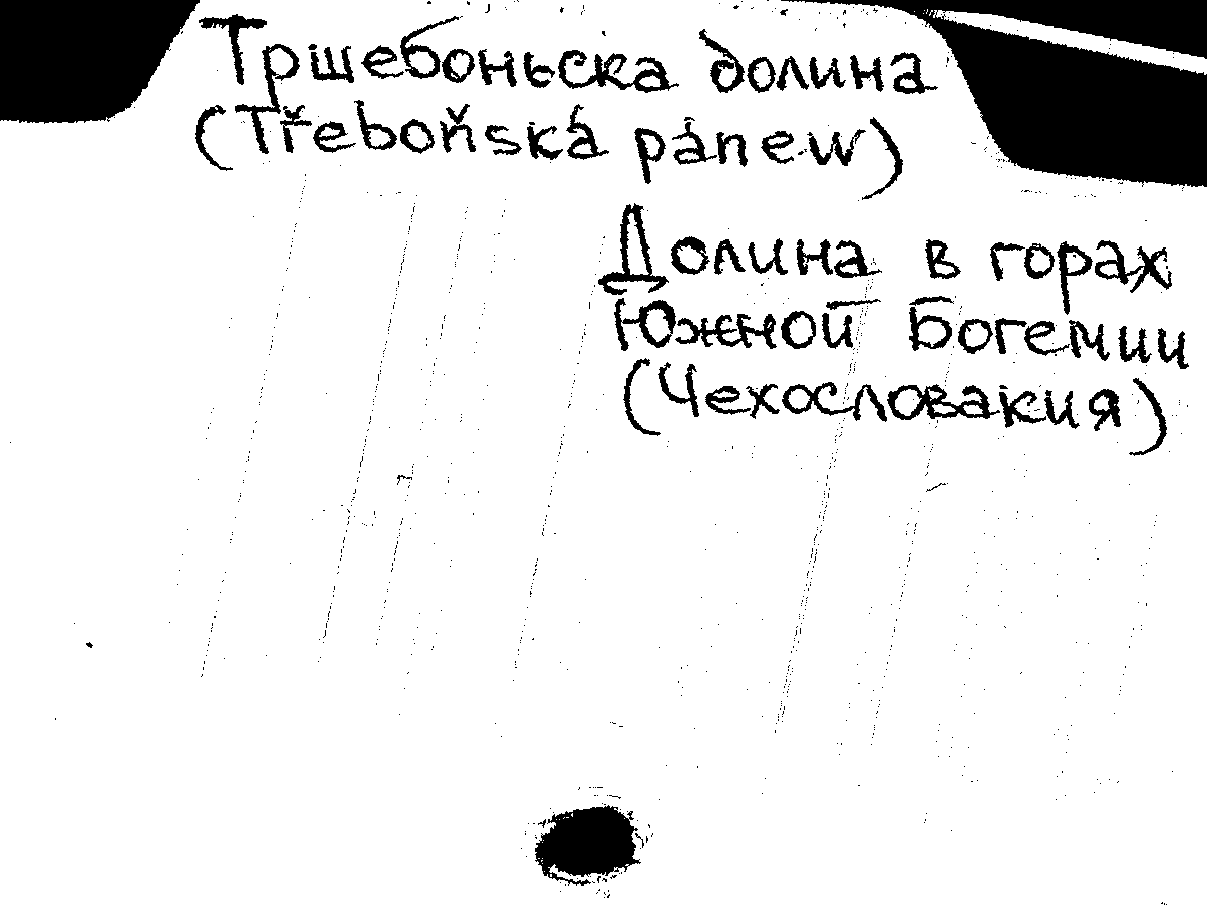 Тршебоньска долина
(Třeboňská pánew)
Долина в горах
Южной Богемии
(Чехословакия)